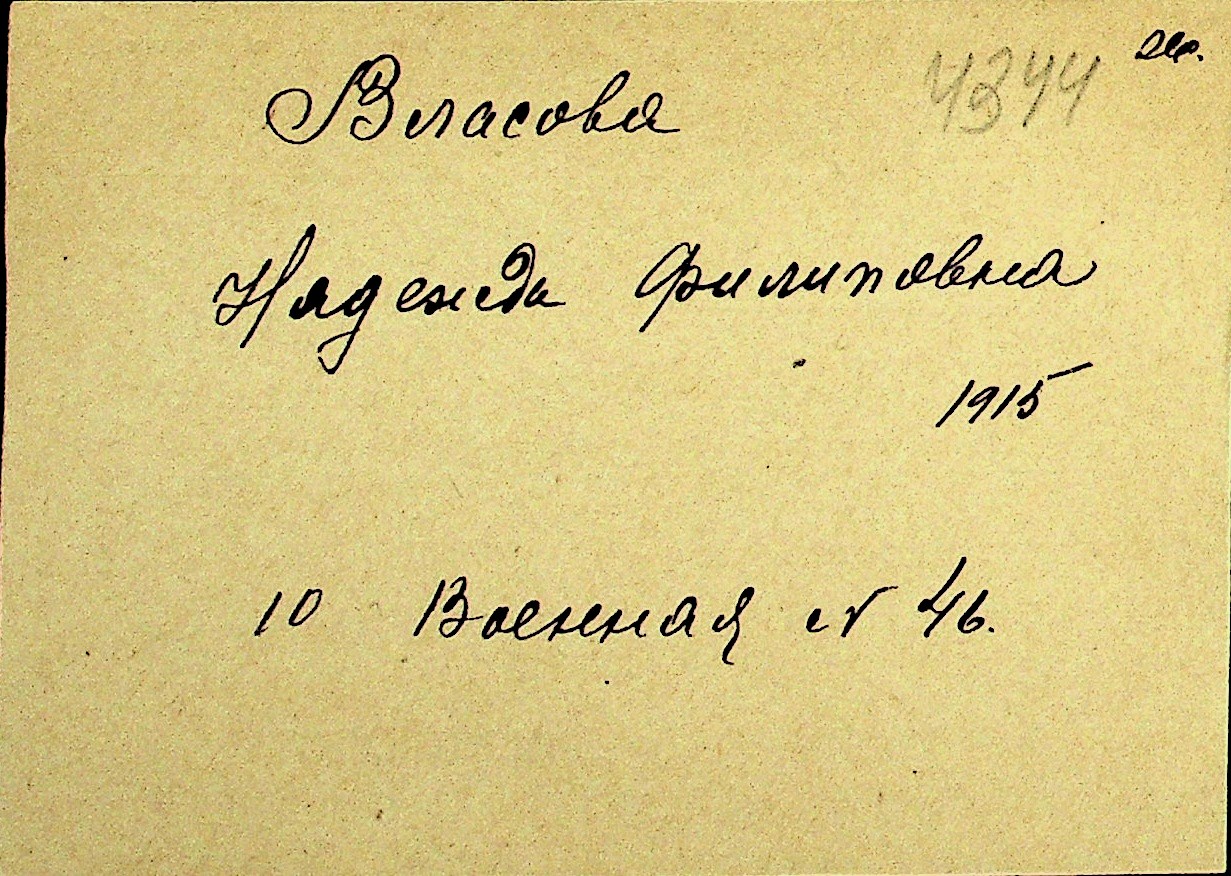 Власова 4344
Надежда Филиповна
1915
10 Военная N 46.